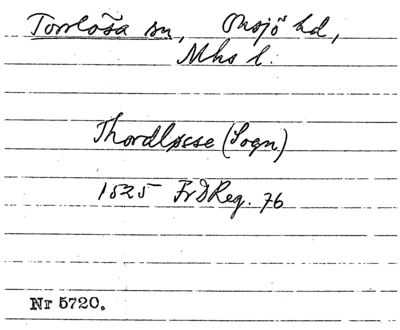 Torrlösa sn, Onsjö hd,
Mhs l.
Thordløsse (Sogn)
1525 FrDReg. 76
Nr 5720.